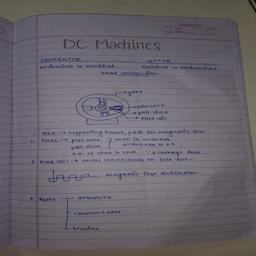 DC Machines
GENERATOR MOTOR
Mechanical to electrical Electrical → mechanical
same construction
→ yoke
→ pole core
→ pole shoe
→ field coil
1. Yoke → supporting frame, path for magnetic flux.
2. Poles → pole core
pole shoe alternate N & S
3. Field coil → series connections on pole shoe.
magnetic flux distribution.
4. Rotor armature
commutator
brushes